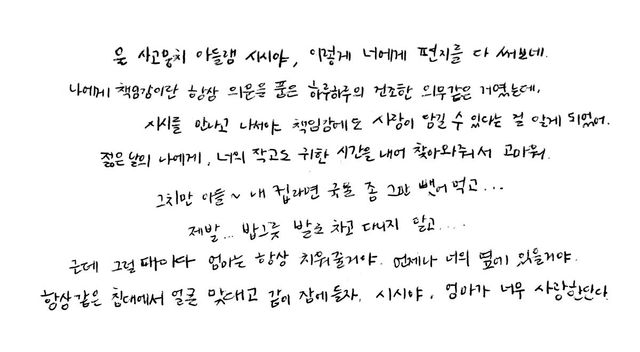 울 사고뭉치 아들램 시시야, 이렇게 너에게 편지를 다 써보네.
나에게 책임감이란 항상 의문을 품은 하루하루의 건조한 의무같은 거였는데,
시시를 만나고 나서야 책임감에도 사랑이 담길 수 있다는 걸 알게 되었어.
젊은 날의 나에게, 너의 작고도 귀한 시간을 내어 찾아와줘서 고마워.
그치만 아들~ 내 컵라면 국물 좀 그만 뺏어 먹고...
제발... 밥그릇 발로 차고 다니지 말고....
근데 그럴 때마다 엄마는 항상 치워줄거야. 언제나 너의 옆에 있을거야.
항상 같은 침대에서 얼굴 맞대고 같이 잠에 들자. 시시야, 엄마가 너무 사랑한단다.